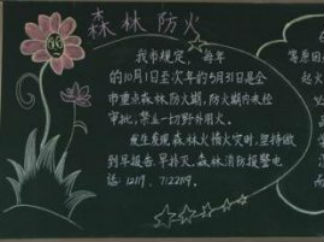 森林防火
我市规定，每年
的10月1日至次年的5月31日是全
市重点森林防火期，防火期内未经
审批，禁止一切野外用火。
发生发现森林火情火灾时，坚持做
到早报告、早扑灭。森林消防报警电
话：12119、7122119。